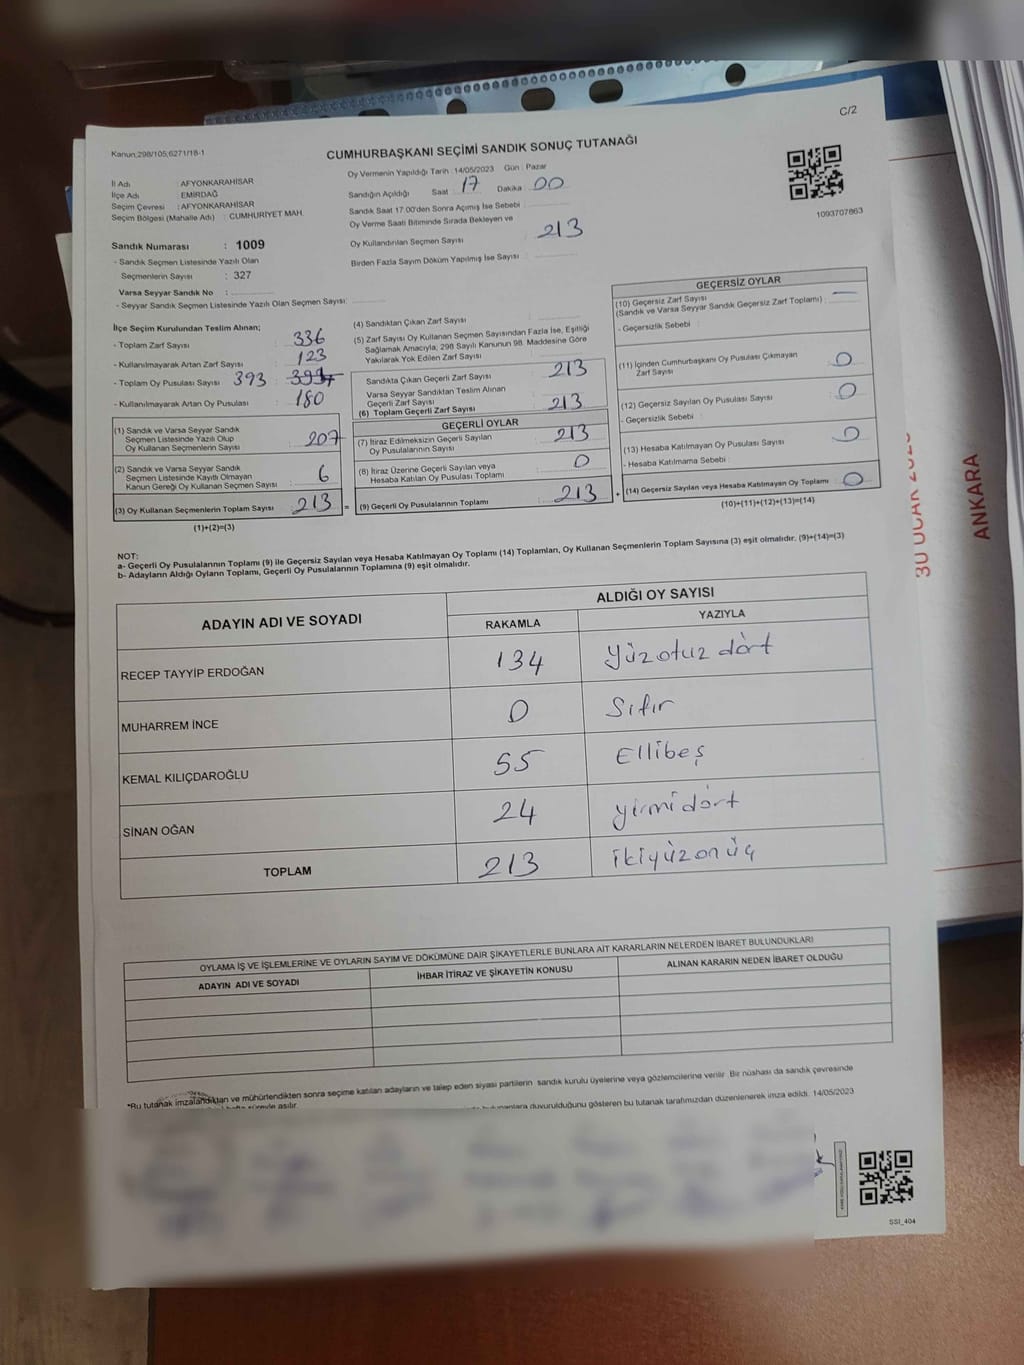 C/2
Kanun;298/105;6271/18-1
CUMHURBAŞKANI SEÇİMİ SANDIK SONUÇ TUTANAĞI
İl Adı : AFYONKARAHİSAR
İlçe Adı : EMİRDAĞ
Seçim Çevresi : AFYONKARAHİSAR
Seçim Bölgesi (Mahalle Adı) : CUMHURİYET MAH.
Sandık Numarası : 1009
- Sandık Seçmen Listesinde Yazılı Olan
Seçmenlerin Sayısı : 327
Varsa Seyyar Sandık No :
- Seyyar Sandık Seçmen Listesinde Yazılı Olan Seçmen Sayısı:
Oy Vermenin Yapıldığı Tarih : 14/05/2023 Gün : Pazar
Sandığın Açıldığı Saat : 17 Dakika : 00
Sandık Saat 17.00'den Sonra Açılmış İse Sebebi :
Oy Verme Saati Bitiminde Sırada Bekleyen ve
Oy Kullandırılan Seçmen Sayısı : 213
Birden Fazla Sayım Döküm Yapılmış İse Sayısı :
1093707863
İlçe Seçim Kurulundan Teslim Alınan;
- Toplam Zarf Sayısı : 336
- Kullanılmayarak Artan Zarf Sayısı : 123
- Toplam Oy Pusulası Sayısı 393 :
- Kullanılmayarak Artan Oy Pusulası : 180
(1) Sandık ve Varsa Seyyar Sandık
Seçmen Listesinde Yazılı Olup
Oy Kullanan Seçmenlerin Sayısı : 207
(2) Sandık ve Varsa Seyyar Sandık
Seçmen Listesinde Kayıtlı Olmayan
Kanun Gereği Oy Kullanan Seçmen Sayısı : 6
(3) Oy Kullanan Seçmenlerin Toplam Sayısı : 213
(1)+(2)=(3)
(4) Sandıktan Çıkan Zarf Sayısı :
(5) Zarf Sayısı Oy Kullanan Seçmen Sayısından Fazla İse, Eşitliği
Sağlamak Amacıyla; 298 Sayılı Kanunun 98. Maddesine Göre
Yakılarak Yok Edilen Zarf Sayısı :
Sandıkta Çıkan Geçerli Zarf Sayısı : 213
Varsa Seyyar Sandıktan Teslim Alınan
Geçerli Zarf Sayısı :
(6) Toplam Geçerli Zarf Sayısı : 213
GEÇERLİ OYLAR
(7) İtiraz Edilmeksizin Geçerli Sayılan
Oy Pusulalarının Sayısı : 213
(8) İtiraz Üzerine Geçerli Sayılan veya
Hesaba Katılan Oy Pusulası Toplamı : 0
= (9) Geçerli Oy Pusulalarının Toplamı : 213
GEÇERSİZ OYLAR
(10) Geçersiz Zarf Sayısı
(Sandık ve Varsa Seyyar Sandık Geçersiz Zarf Toplamı) : —
- Geçersizlik Sebebi :
(11) İçinden Cumhurbaşkanı Oy Pusulası Çıkmayan
Zarf Sayısı : 0
(12) Geçersiz Sayılan Oy Pusulası Sayısı : 0
- Geçersizlik Sebebi :
(13) Hesaba Katılmayan Oy Pusulası Sayısı : 0
- Hesaba Katılmama Sebebi :
+ (14) Geçersiz Sayılan veya Hesaba Katılmayan Oy Toplamı : 0
(10)+(11)+(12)+(13)=(14)
NOT:
a- Geçerli Oy Pusulalarının Toplamı (9) ile Geçersiz Sayılan veya Hesaba Katılmayan Oy Toplamı (14) Toplamları, Oy Kullanan Seçmenlerin Toplam Sayısına (3) eşit olmalıdır. (9)+(14)=(3)
b- Adayların Aldığı Oyların Toplamı, Geçerli Oy Pusulalarının Toplamına (9) eşit olmalıdır.
ADAYIN ADI VE SOYADI ALDIĞI OY SAYISI
RAKAMLA YAZIYLA
RECEP TAYYİP ERDOĞAN 134 Yüzotuz dört
MUHARREM İNCE 0 Sıfır
KEMAL KILIÇDAROĞLU 55 Ellibeş
SİNAN OĞAN 24 yirmidört
TOPLAM 213 ikiyüzonüç
OYLAMA İŞ VE İŞLEMLERİNE VE OYLARIN SAYIM VE DÖKÜMÜNE DAİR ŞİKAYETLERLE BUNLARA AİT KARARLARIN NELERDEN İBARET BULUNDUKLARI
ADAYIN ADI VE SOYADI İHBAR İTİRAZ VE ŞİKAYETİN KONUSU ALINAN KARARIN NEDEN İBARET OLDUĞU
*Bu tutanak imzalandıktan ve mühürlendikten sonra seçime katılan adayların ve talep eden siyasi partilerin sandık kurulu üyelerine veya gözlemcilerine verilir. Bir nüshası da sandık çevresinde
hafta süreyle asılır. duyurulduğunu gösteren bu tutanak tarafımızdan düzenlenerek imza edildi. 14/05/2023
SSI_404
ANKARA